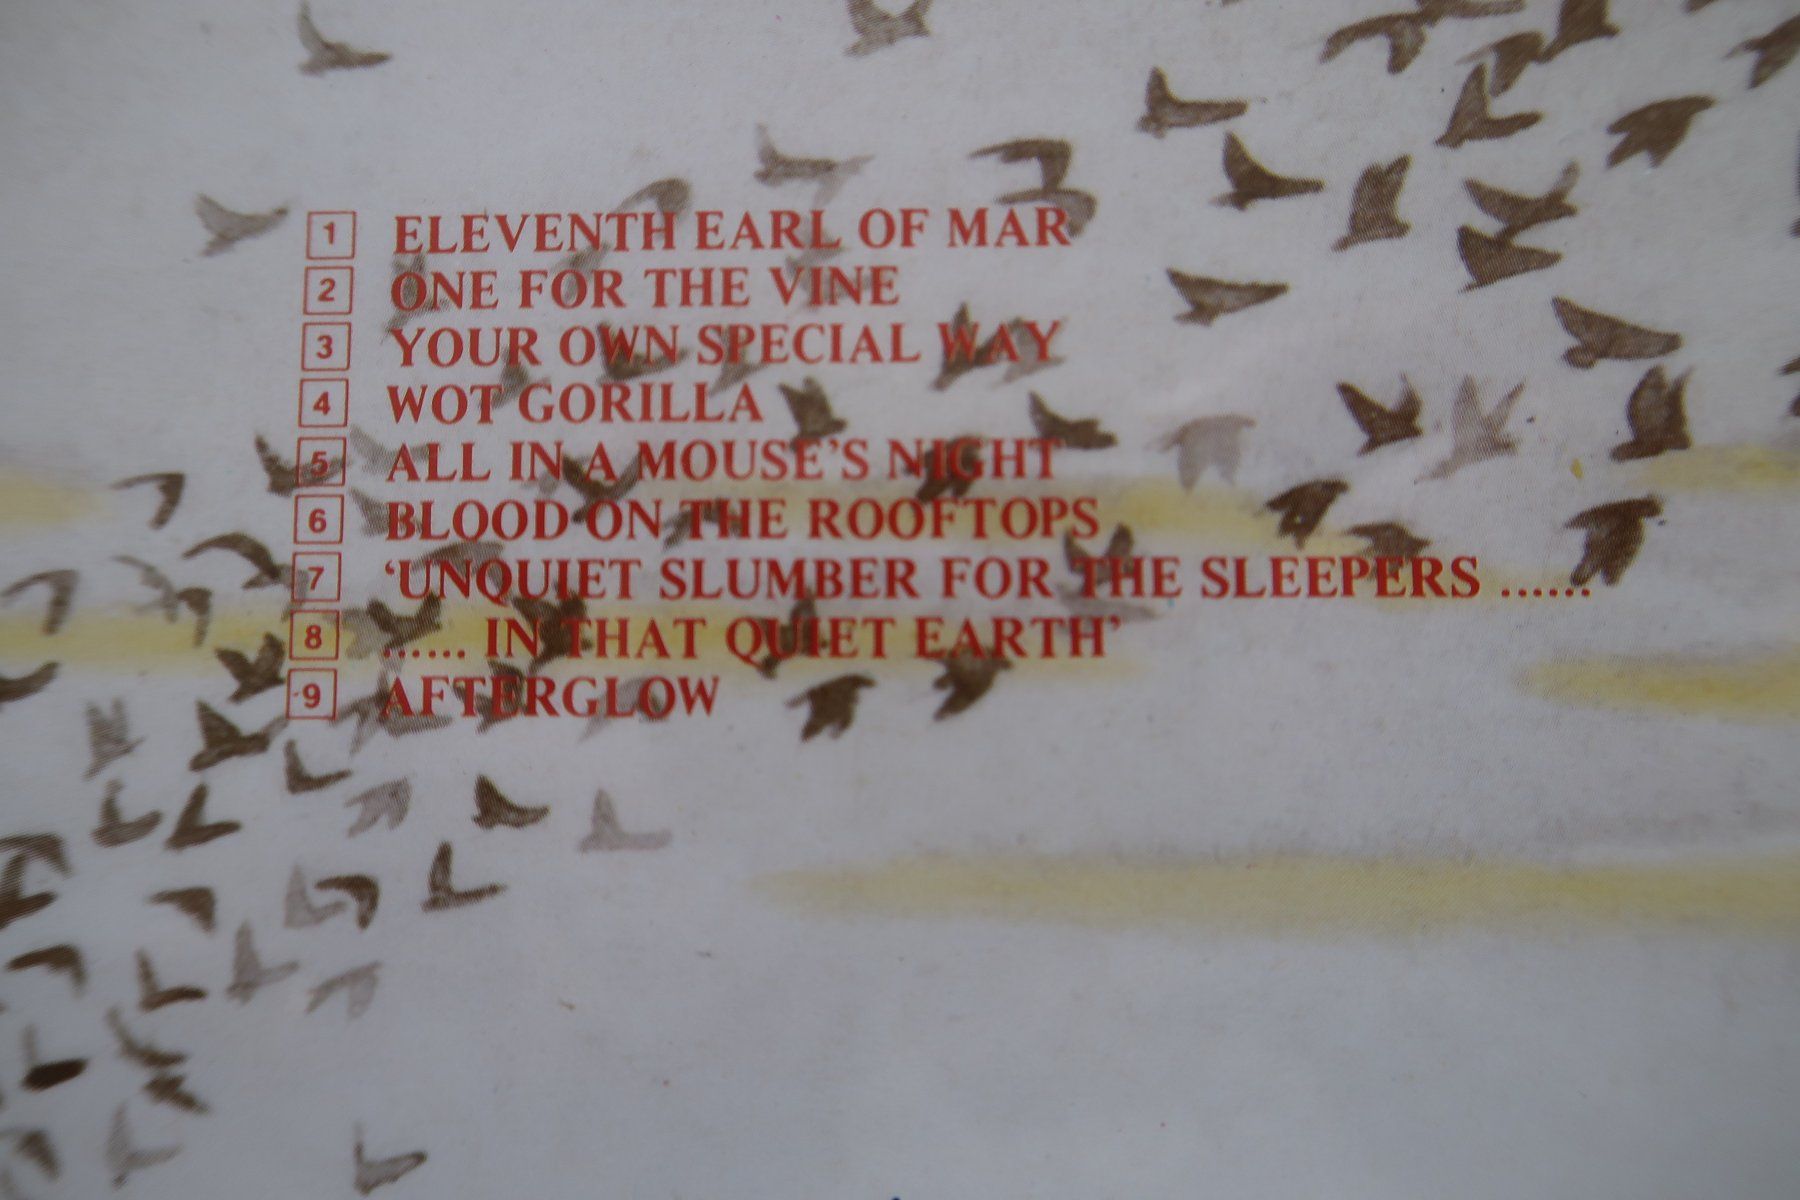 1 ELEVENTH EARL OF MAR
2 ONE FOR THE VINE
3 YOUR OWN SPECIAL WAY
4 WOT GORILLA
5 ALL IN A MOUSE'S NIGHT
6 BLOOD ON THE ROOFTOPS
7 ‘UNQUIET SLUMBER FOR THE SLEEPERS ......
8 ...... IN THAT QUIET EARTH’
9 AFTERGLOW